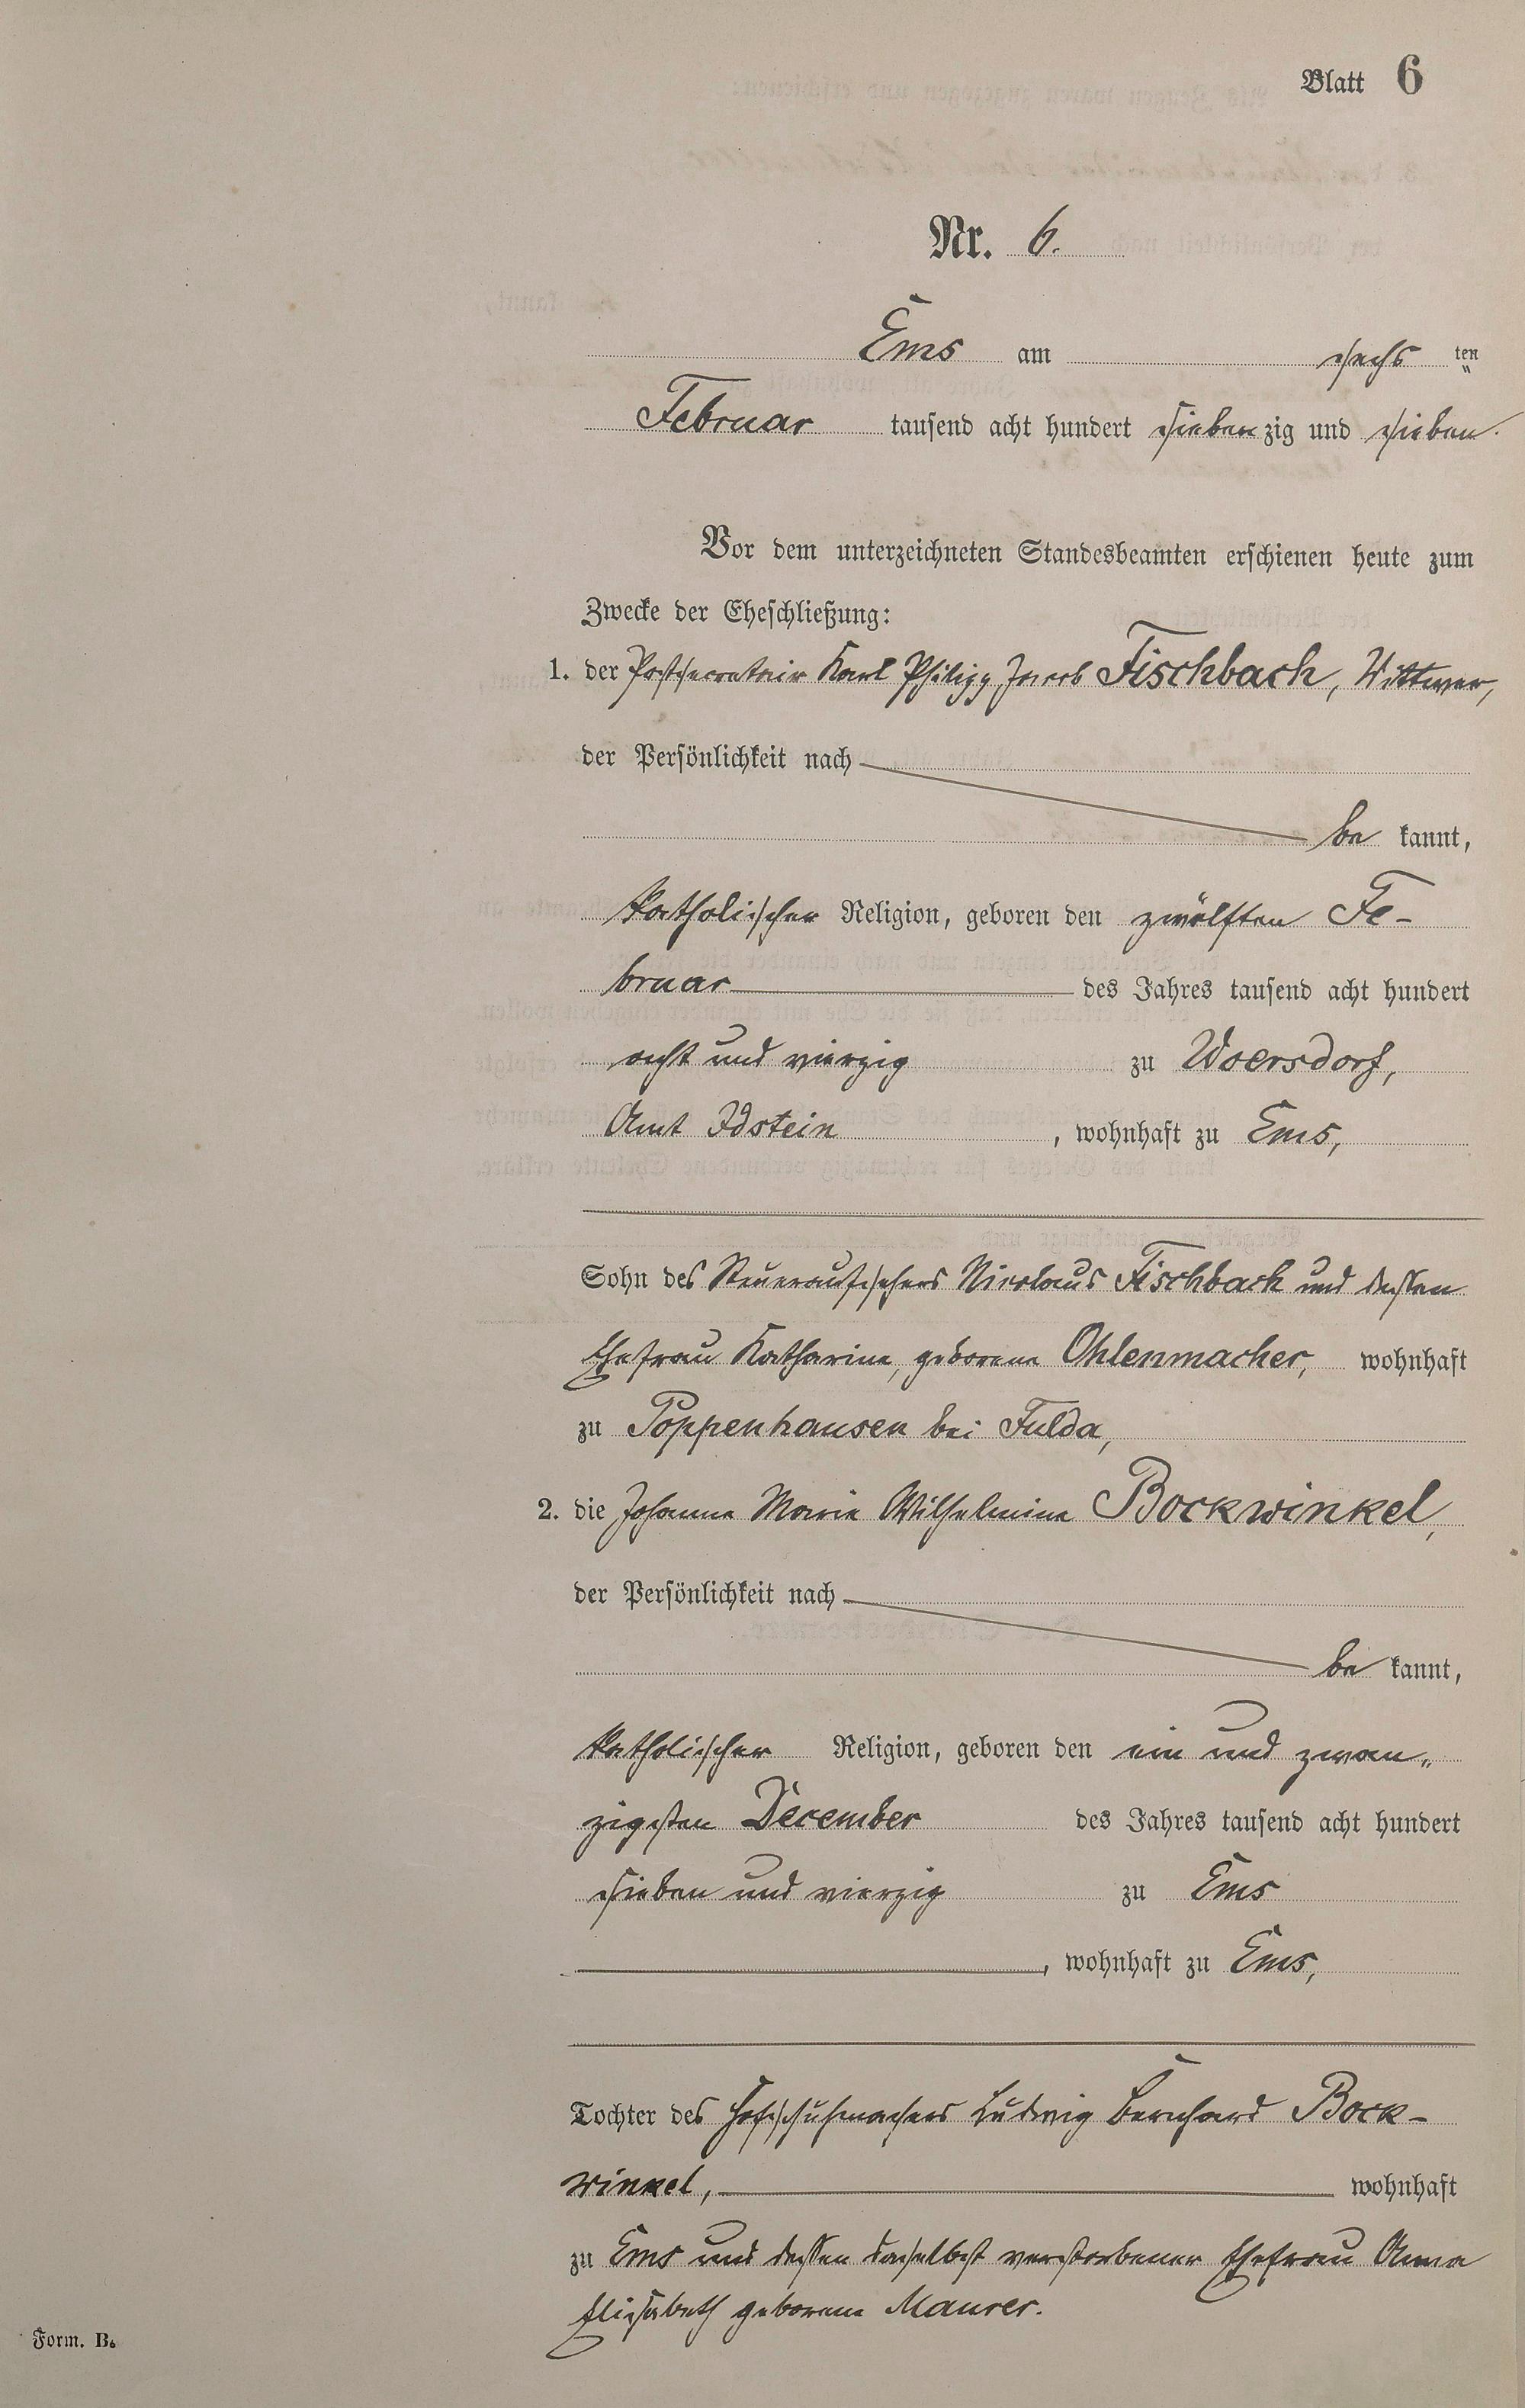 Blatt 6
Nr. 6.
Ems am sechs ten
Februar tausend acht hundert siebenzig und sieben.
Vor dem unterzeichneten Standesbeamten erschienen heute zum
Zwecke der Eheschließung:
1. der Postsecretair Karl Philipp Jacob Fischbach, Wittwer,
der Persönlichkeit nach
be kannt,
katholischer Religion, geboren den zwölften Fe-
bruar des Jahres tausend acht hundert
acht und vierzig zu Woersdorf,
Amt Idstein, wohnhaft zu Ems,
Sohn des Steueraufsehers Nicolaus Fischbach und dessen
Ehefrau Katharine, geborene Ohlenmacher, wohnhaft
zu Poppenhausen bei Fulda,
2. die Johanna Maria Wilhelmina Bockwinkel,
der Persönlichkeit nach
be kannt,
katholischer Religion, geboren den ein und zwan„
zigsten December des Jahres tausend acht hundert
sieben und vierzig zu Ems
, wohnhaft zu Ems,
Tochter des Hofschuhmachers Ludwig Bernhard Bock-
winkel, wohnhaft
zu Ems und dessen daselbst verstorbener Ehefrau Anna
Elisabeth geborene Maurer.
Form. B.